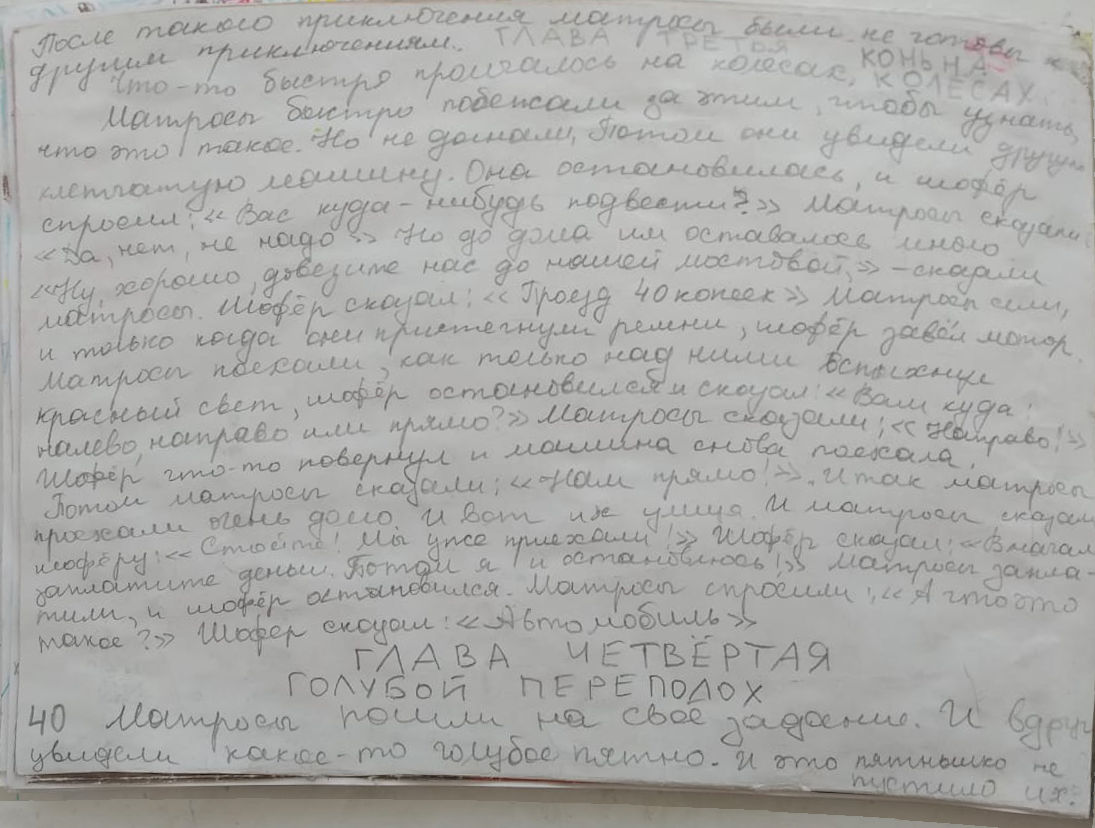 После такого приключения матросы были не готовы к
другим приключениям. ГЛАВА ТРЕТЬЯ КОНЬ НА
Что-то быстро промчалось на колёсах, КОЛЁСАХ.
Матросы быстро побежали за этим, чтобы узнать,
что это такое. Но не догнали, Потом они увидели другую
клетчатую машину. Она остановилась, и шофёр
спросил: «Вас куда-нибудь подвести?» Матросы сказали:
«Да, нет, не надо» Но до дома им оставалось много
«Ну, хорошо, довезите нас до нашей мостовой,» - сказали
матросы. Шофёр сказал: «Проезд 40 копеек» Матросы сели,
и только когда они пристегнули ремни, шофёр завёл мотор.
Матросы поехали, как только над ними вспыхнул
красный свет, шофёр остановился и сказал: «Вам куда:
налево, направо или прямо?» Матросы сказали: «Направо!»
Шофёр что-то повернул и машина снова поехала.
Потом матросы сказали: «Нам прямо!». И так матросы
проехали очень долго. И вот их улица. И матросы сказали
шофёру: «Стойте! Мы уже приехали!» Шофёр сказал: «Вначале
заплатите деньги. Потом я и остановлюсь!» Матросы запла-
тили, и шофёр остановился. Матросы спросили: «А что это
такое?» Шофер сказал: «Автомобиль»
ГЛАВА ЧЕТВЁРТАЯ
ГОЛУБОЙ ПЕРЕПОЛОХ
40 Матросы пошли на своё задание. И вдруг
увидели какое-то голубое пятно. И это пятнышко не
пустило их.